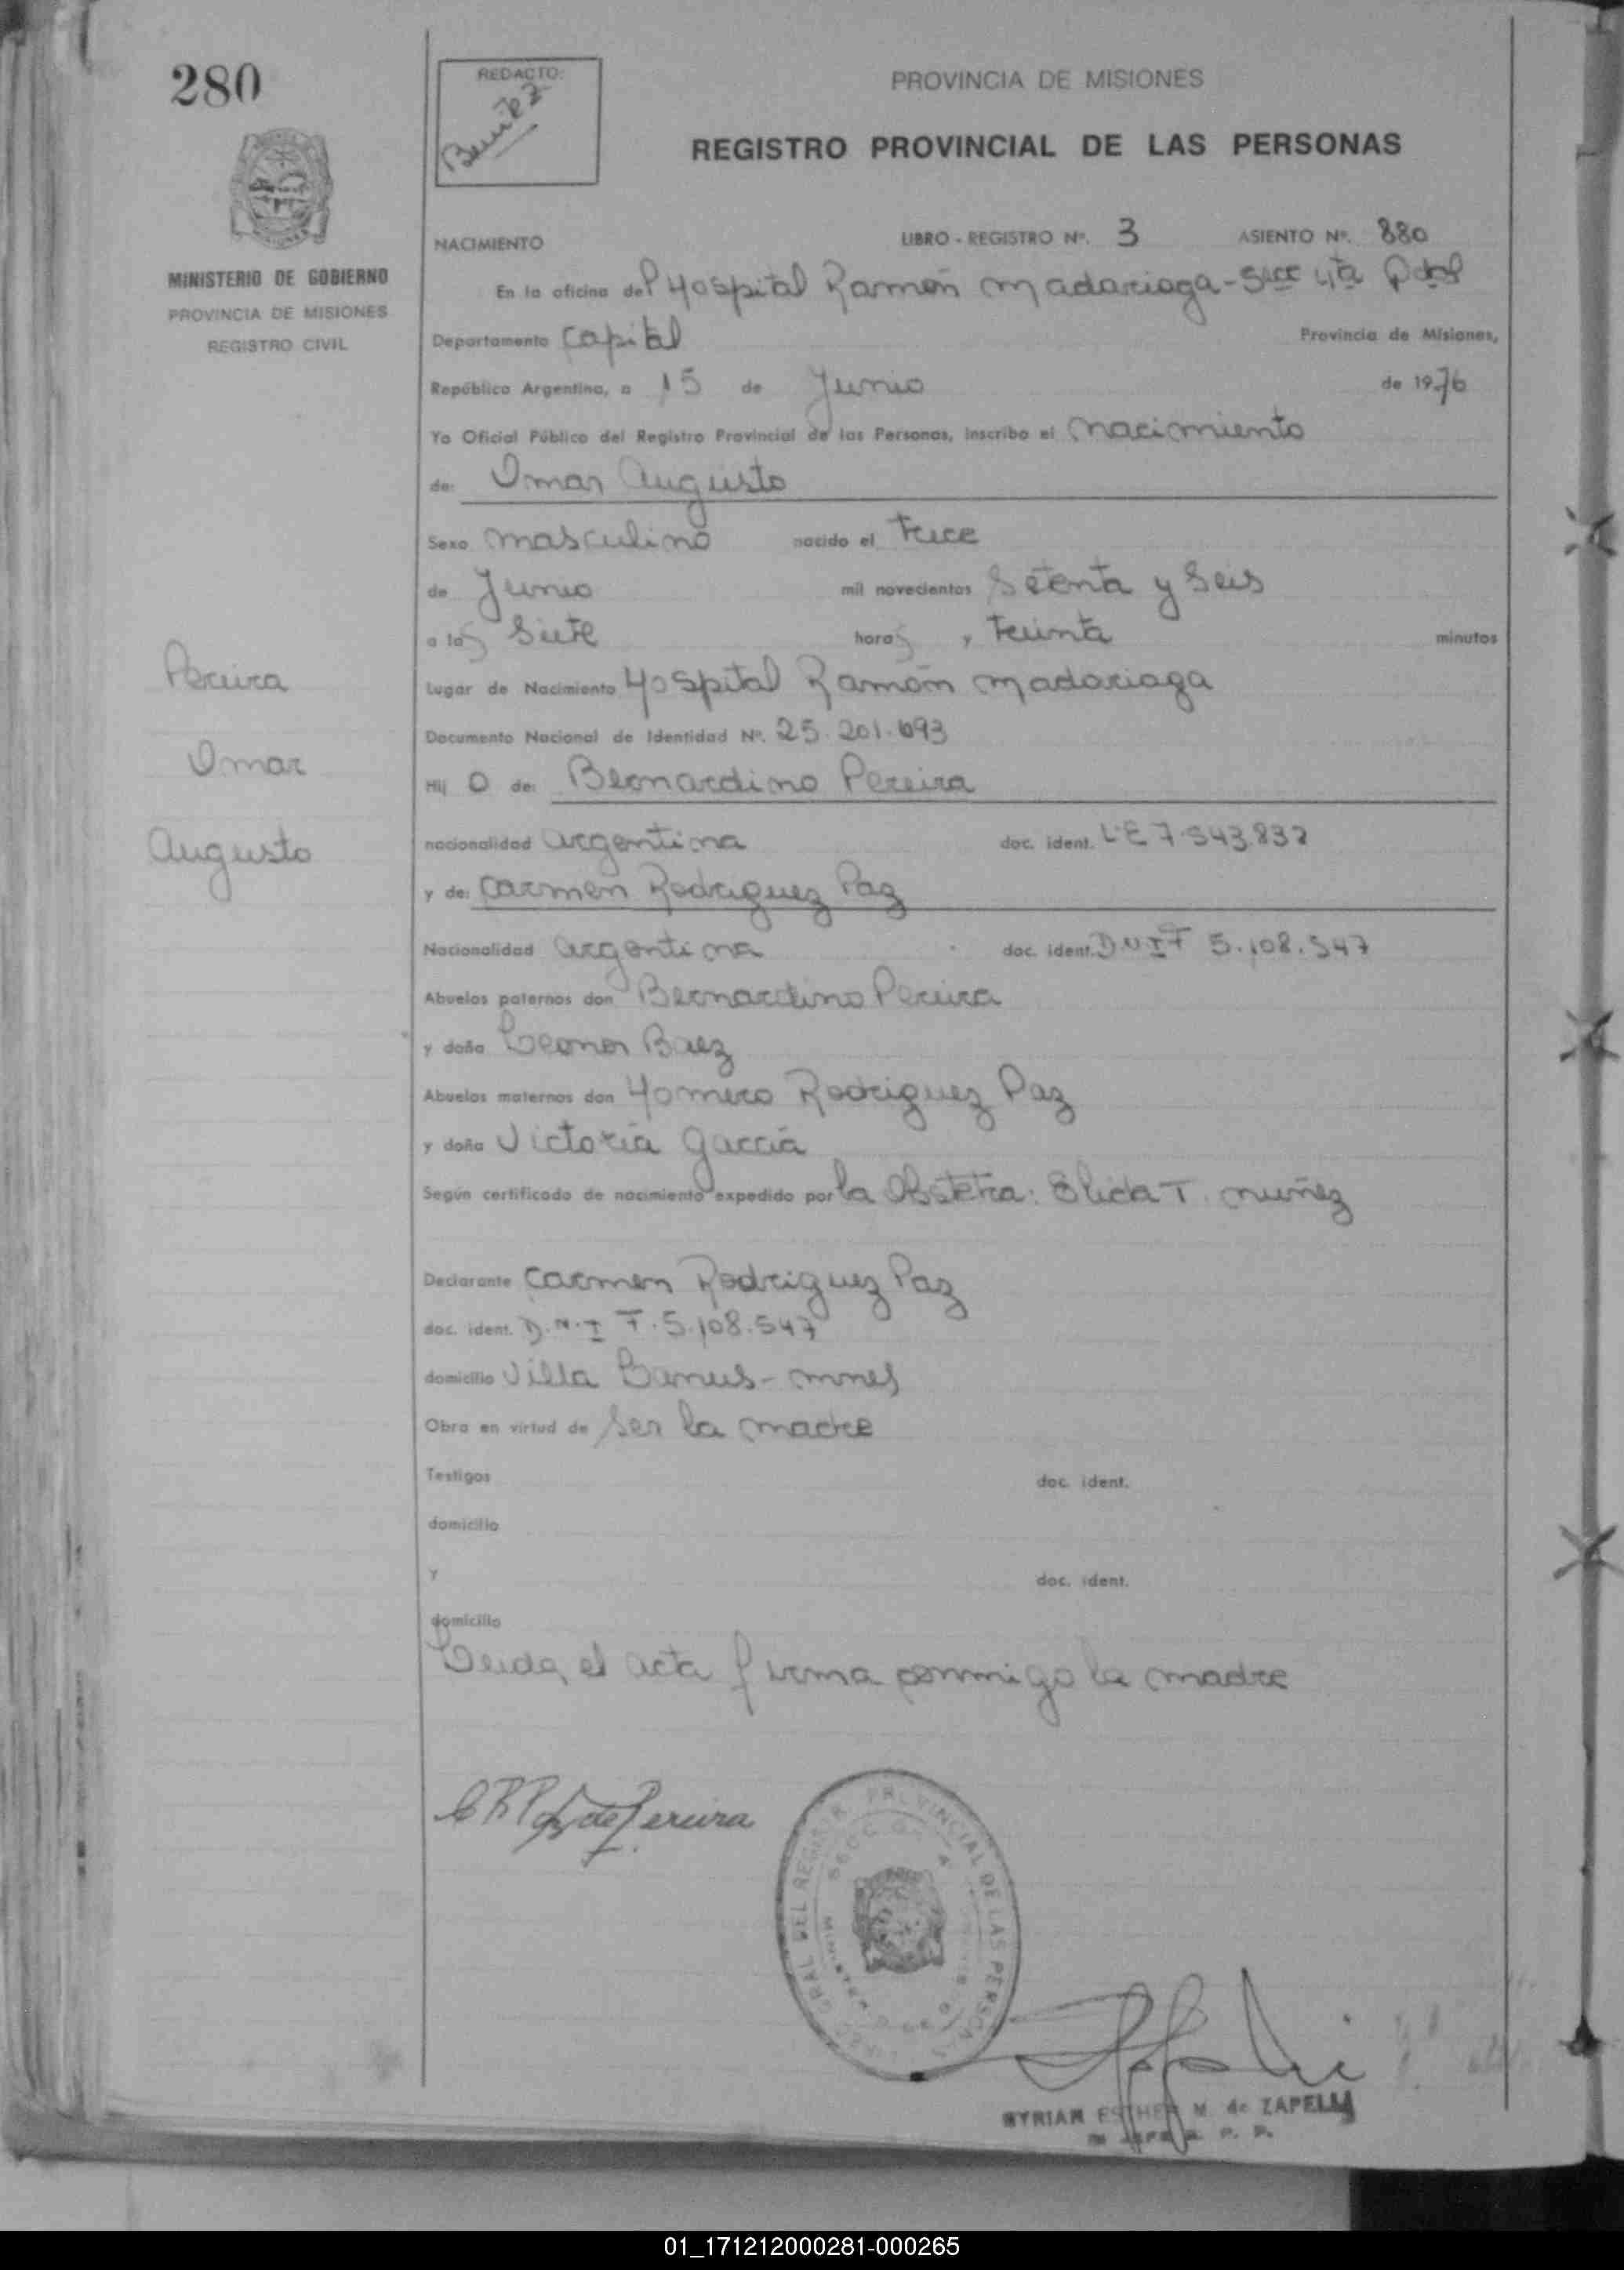 280
REDACTO:
Benitez
PROVINCIA DE MISIONES
REGISTRO PROVINCIAL DE LAS PERSONAS
MINISTERIO DE GOBIERNO
PROVINCIA DE MISIONES
REGISTRO CIVIL
NACIMIENTO LIBRO - REGISTRO Nº. 3 ASIENTO Nº. 880
En la oficina del Hospital Ramón Madariaga - Secc 4ta Pdas
Departamento Capital Provincia de Misiones,
República Argentina, a 15 de Junio de 1976
Yo Oficial Público del Registro Provincial de las Personas, inscribo el nacimiento
de: Omar Augusto
Sexo masculino nacido el trece
de Junio mil novecientos Setenta y Seis
a las Siete horas y treinta minutos
Pereira
Omar
Augusto
Lugar de Nacimiento Hospital Ramón Madariaga
Documento Nacional de Identidad Nº. 25.201.693
Hij o de: Bernardino Pereira
nacionalidad argentina doc. ident. L E 7.543.832
y de: Carmen Rodriguez Paz
Nacionalidad argentina doc. ident. D.N.I F 5.108.547
Abuelos paternos don Bernardino Pereira
y doña Leonor Baez
Abuelos maternos don Homero Rodriguez Paz
y doña Victoria Garcia
Según certificado de nacimiento expedido por la Obstetra: Elida T. Nuñez
Declarante Carmen Rodriguez Paz
doc. ident. D.N.I F.5.108.547
domicilio Villa Mnes
Obra en virtud de ser la madre
Testigos doc. ident.
domicilio
y doc. ident.
domicilio
Leida el acta firma conmigo la madre
C R Paz de Pereira
PROVINCIAL DE LAS PERSONAS
MYRIAN ESTHER M. de ZAPELLI
01_171212000281-000265